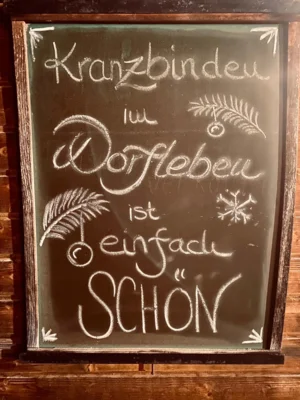 Kranzbinden
im
Dorfleben
ist
einfach
SCHÖN